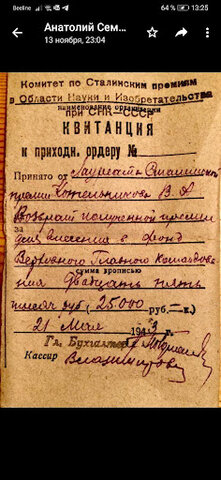 Beeline
64 % 13:25
Анатолий Сем...
13 ноября, 23:04
Комитет по Сталинским премиям
в Области Науки и Изобретательства
наименование организации
при СНК-СССР
КВИТАНЦИЯ
к приходн. ордеру №
Принято от Лауреата Сталинской
премии Котельникова В А
Возврат полученной премии
за для внесения в фонд
Верховного Главного Командова
сумма прописью
ния Двадцать пять
тысяч руб (25.000 руб. – к.)
21 Мая 1943 г.
Гл. Бухгалтер
Кассир